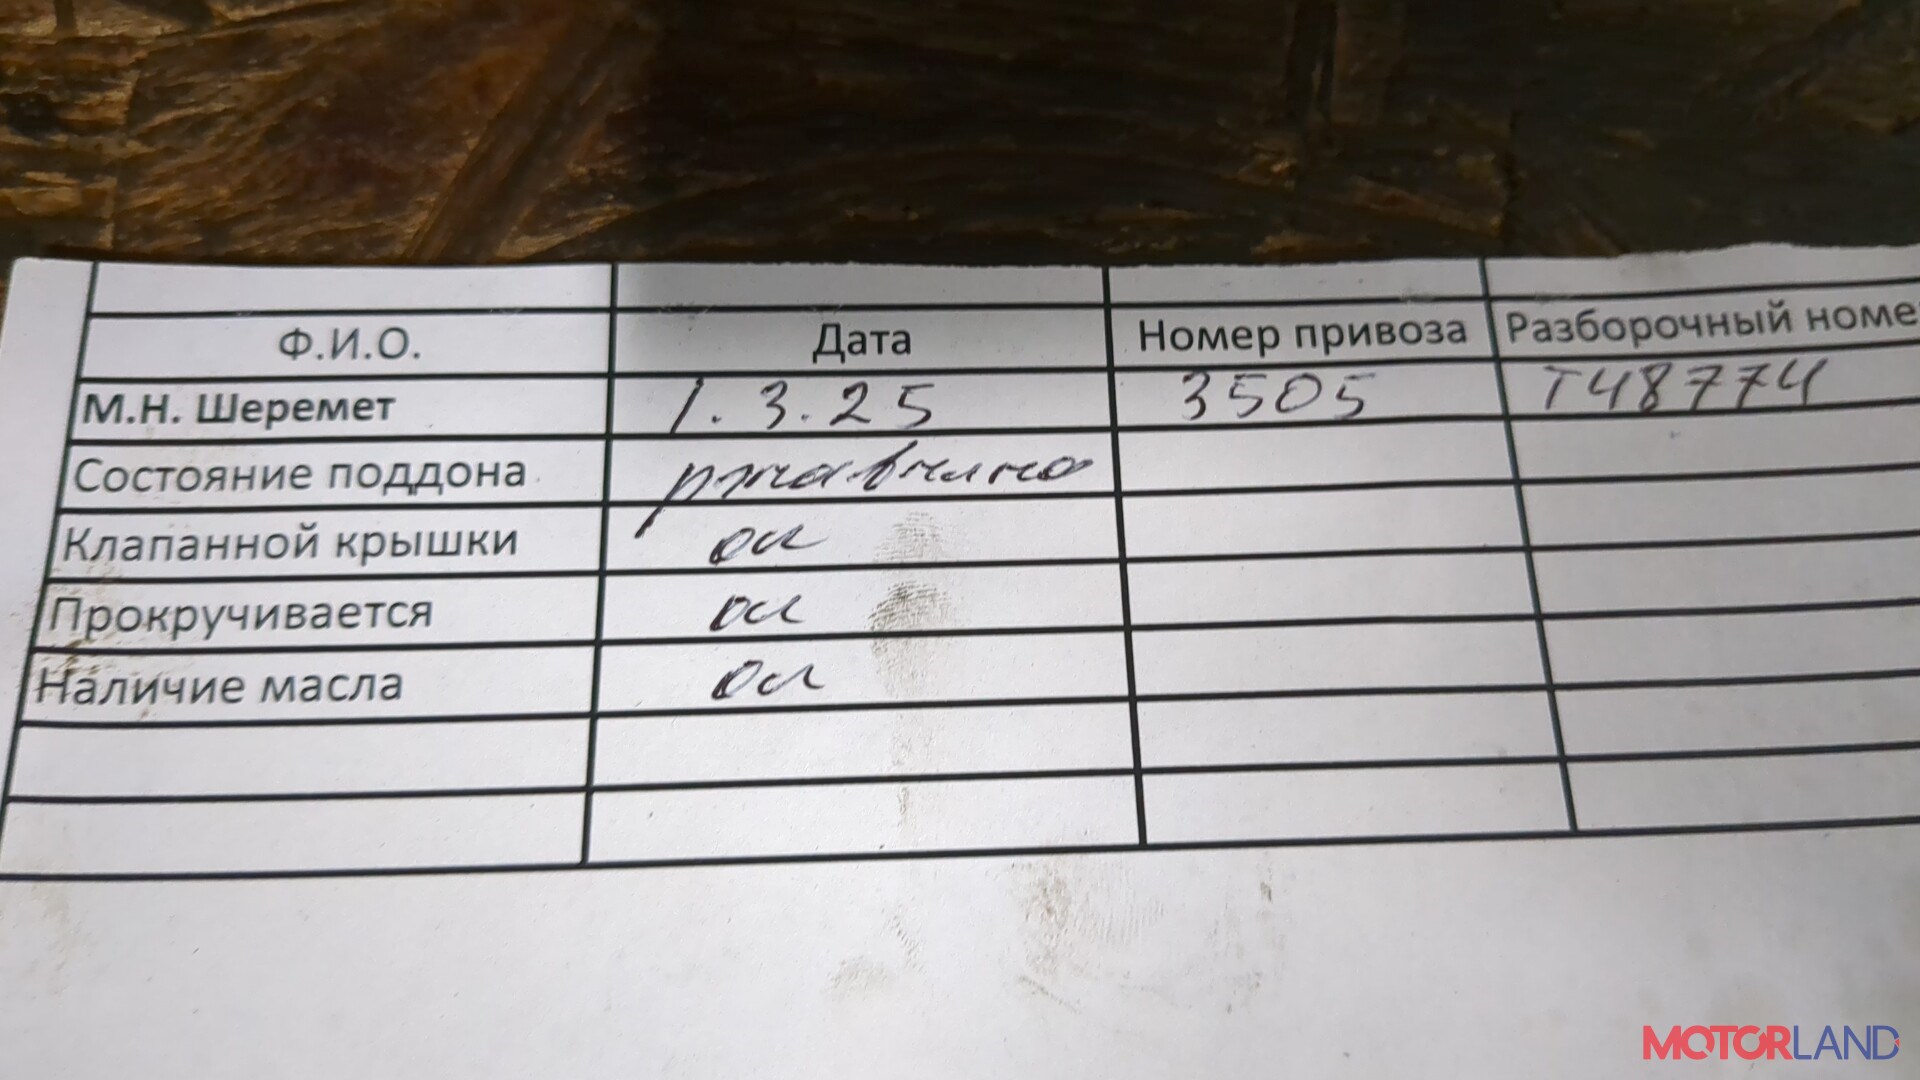 Ф.И.О. Дата Номер привоза Разборочный номе
М.Н. Шеремет 1.3.25 3505 Т48774
Состояние поддона ржавчина
Клапанной крышки ок
Прокручивается ок
Наличие масла ок
MOTORLAND